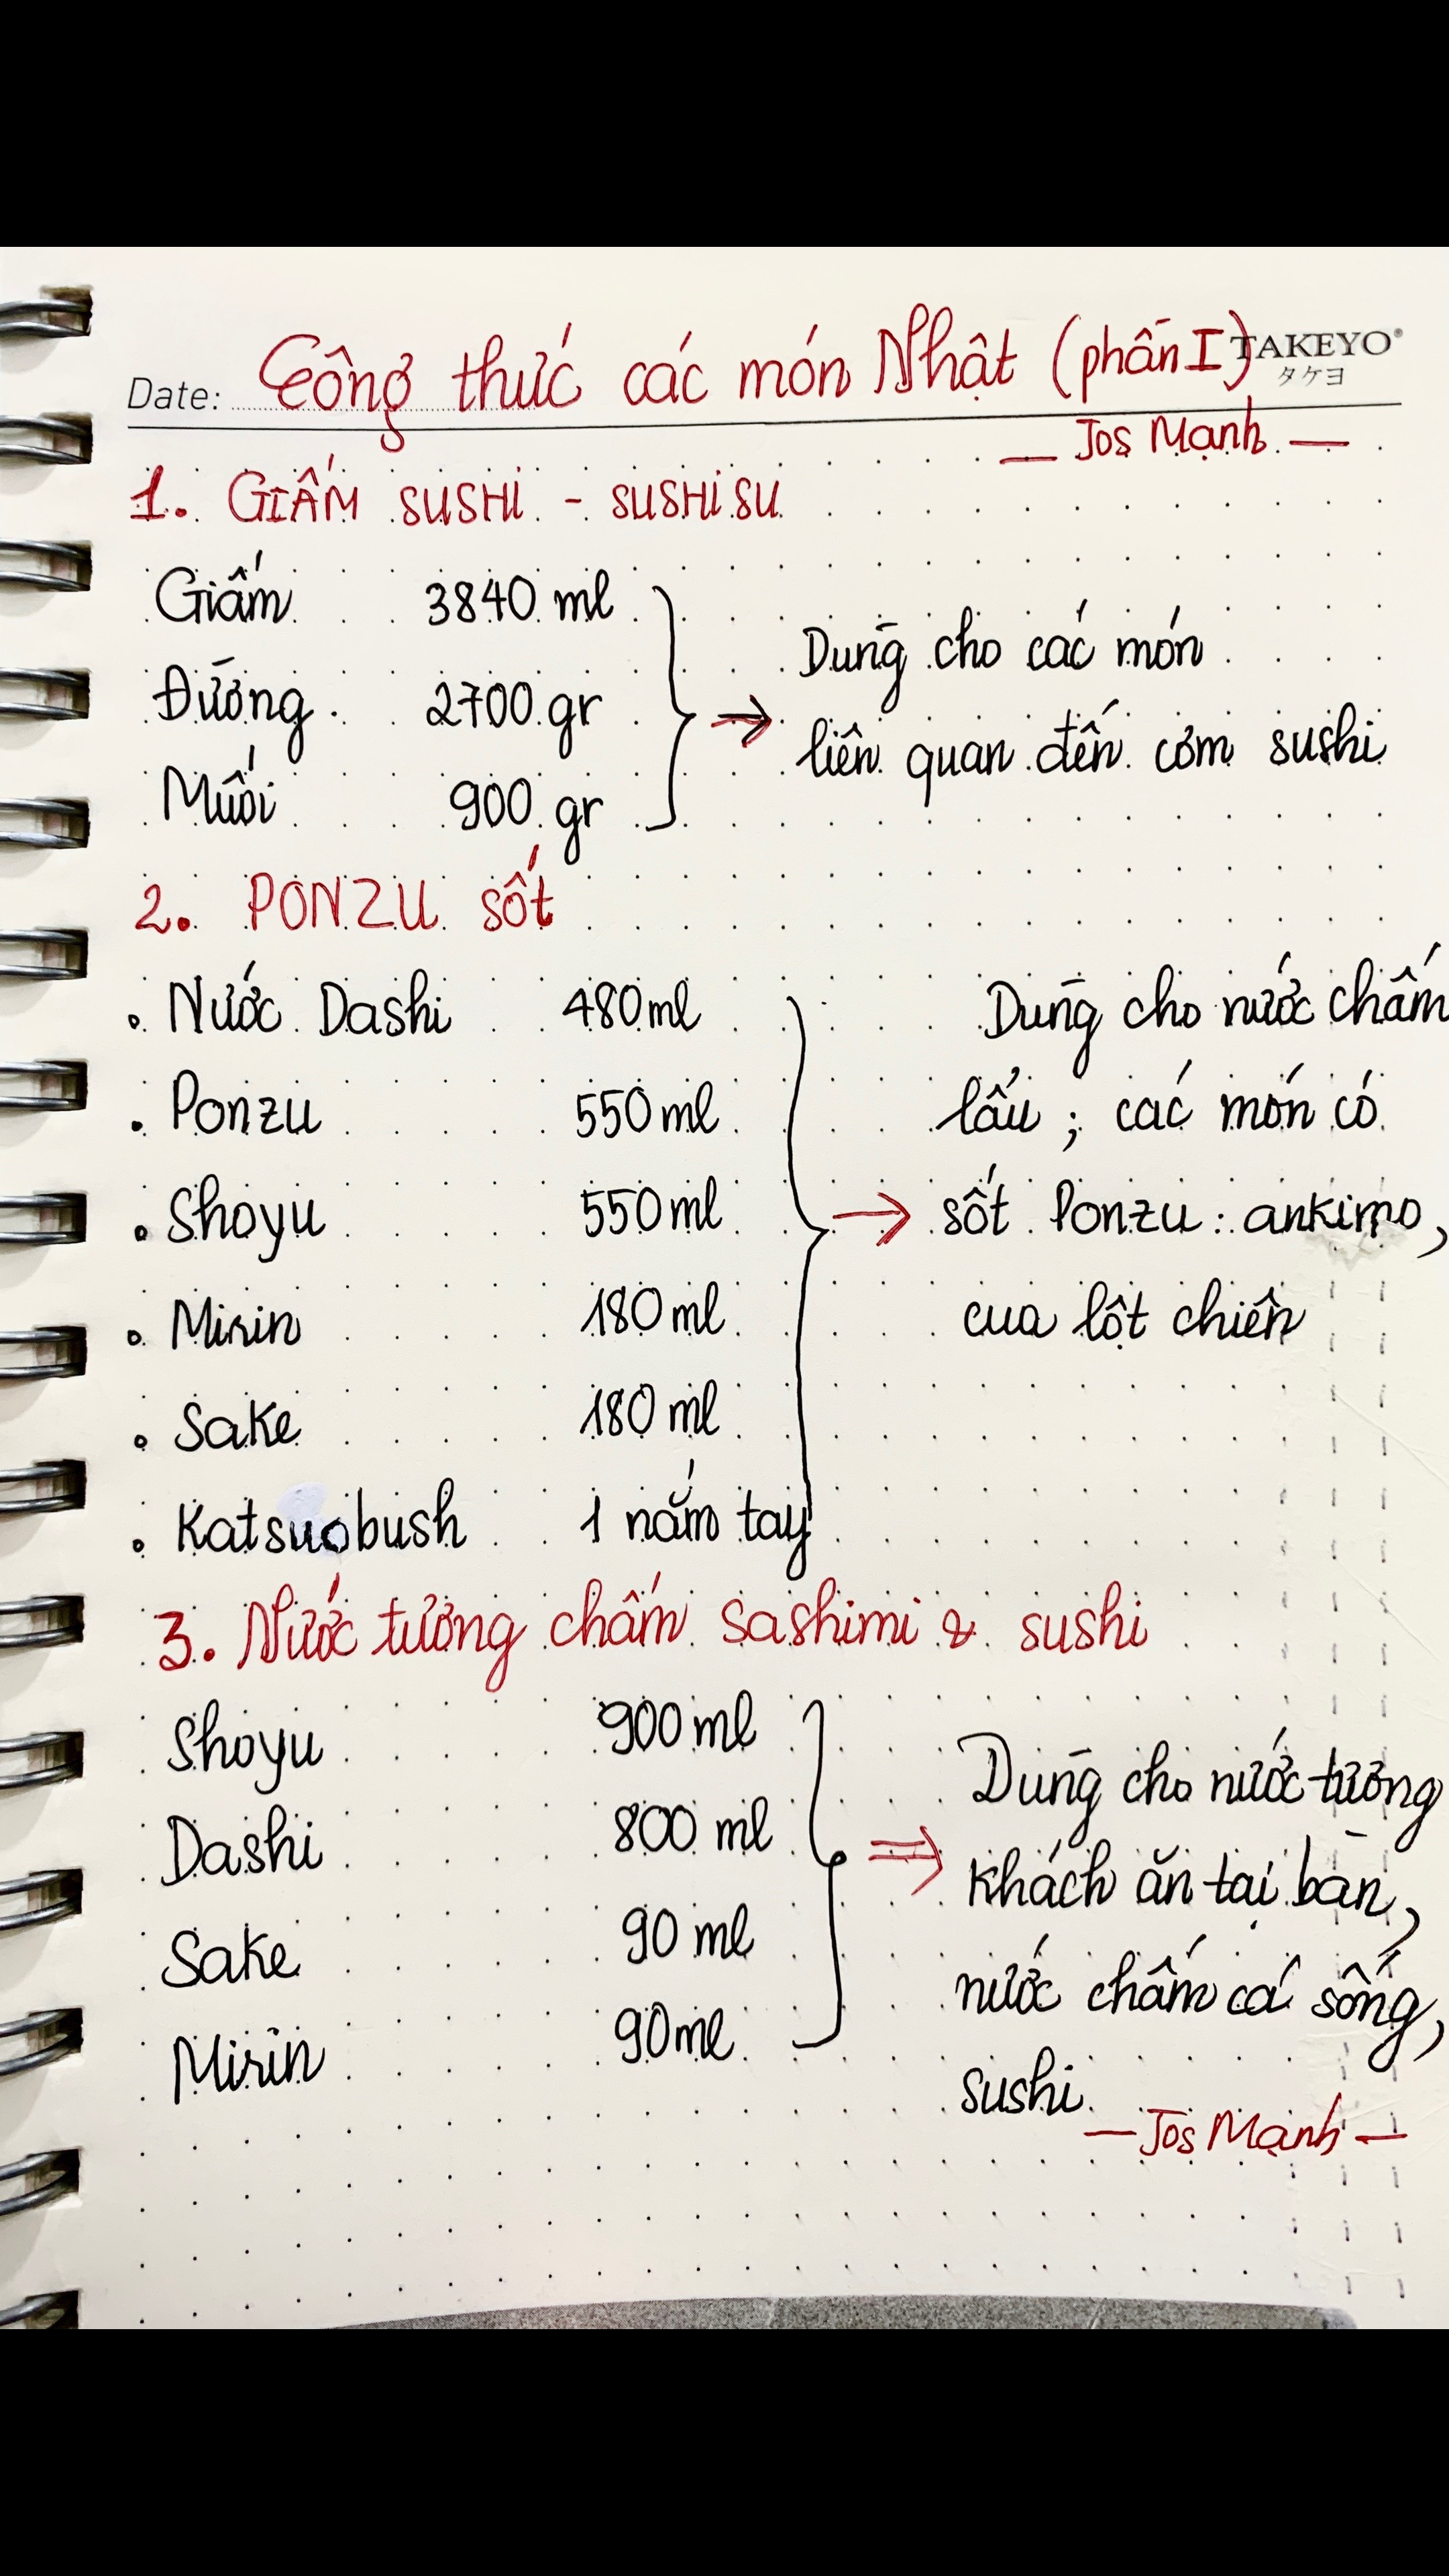 Công thức các món Nhật (phần I)
TAKEYO®
タケヨ
Date:
— Jos Mạnh —
1. GIẤM SUSHI - SUSHI SU
Giấm 3840 ml
Dùng cho các món
Đường 2700 gr
liên quan đến cơm sushi
Muối 900 gr
2. PONZU sốt
Nước Dashi 480ml
Dùng cho nước chấm
Ponzu 550ml
lẩu ; các món có
Shoyu 550ml
sốt Ponzu : ankimo,
Mirin 180ml
cua lột chiên
Sake 180ml
Katsuobush 1 nắm tay
3. Nước tương chấm sashimi & sushi
Shoyu 900ml
Dùng cho nước tương
Dashi 800 ml
khách ăn tại bàn,
Sake 90 ml
nước chấm cá sống,
Mirin 90ml
sushi
— Jos Mạnh —